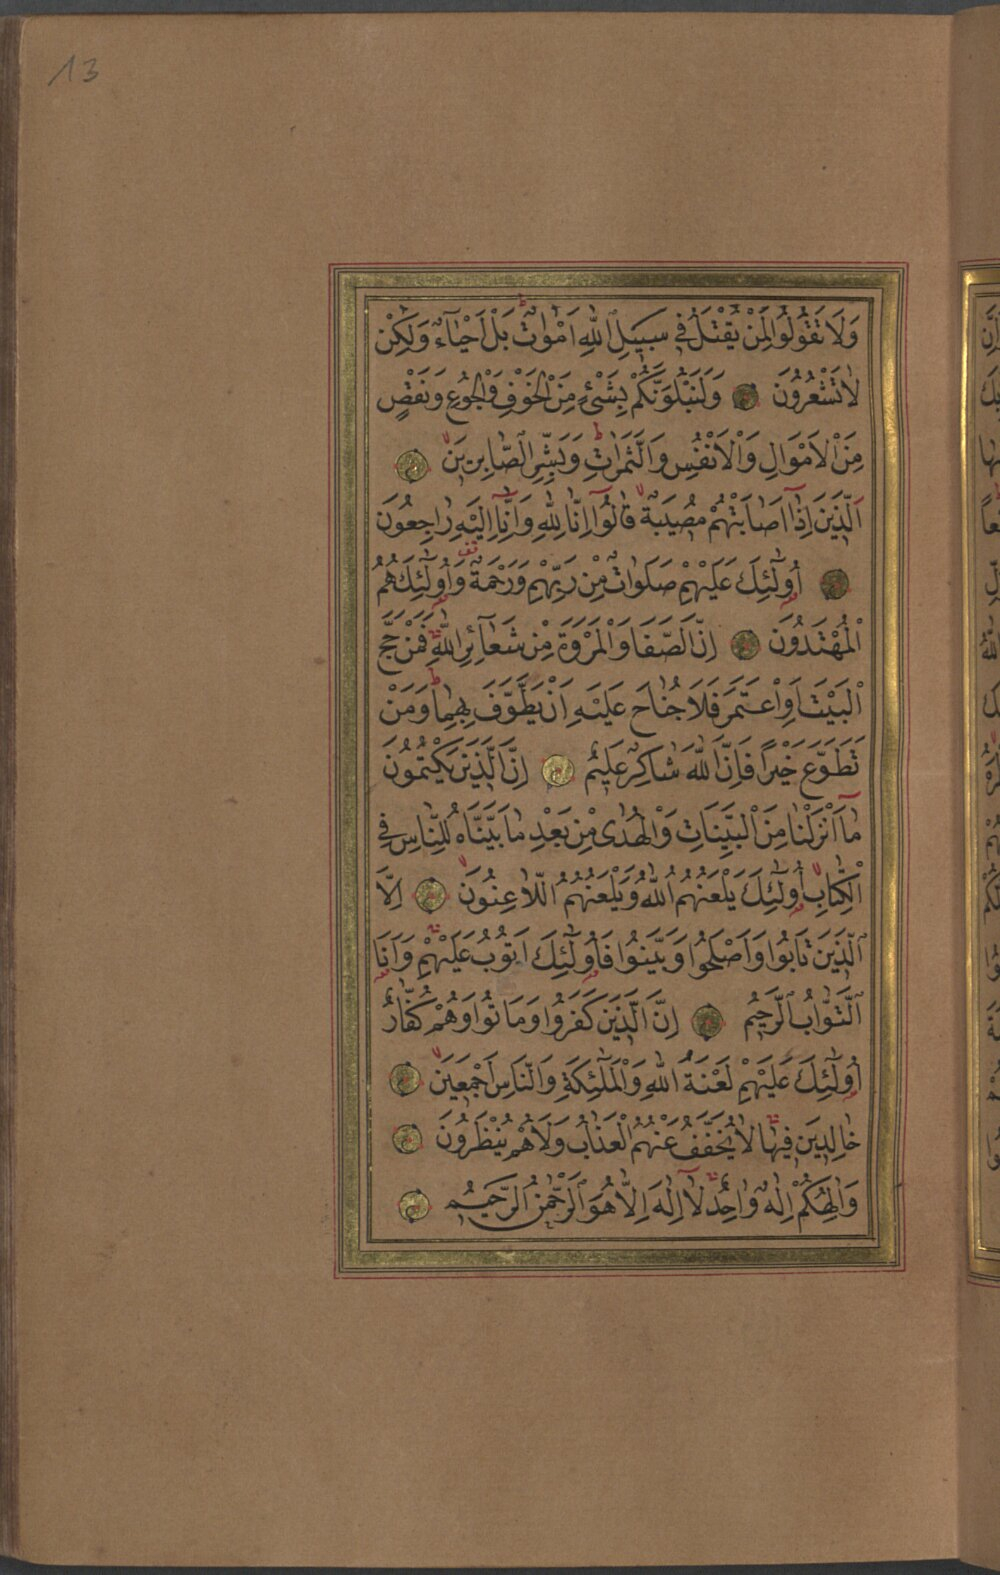 13
وَلَا تَقُولُوا لِمَنْ يُقْتَلُ فِي سَبِيلِ اللّٰهِ اَمْوَاتٌ بَلْ اَحْيَآءٌ وَلٰكِنْ
لَا تَشْعُرُونَ وَلَنَبْلُوَنَّكُمْ بِشَيْءٍ مِنَ الْخَوْفِ وَالْجُوعِ وَنَقْصٍ
مِنَ الْاَمْوَالِ وَالْاَنْفُسِ وَالثَّمَرَاتِ وَبَشِّرِ الصَّابِرِينَ
اَلَّذِينَ اِذَآ اَصَابَتْهُمْ مُصِيبَةٌ قَالُوٓا اِنَّا لِلّٰهِ وَاِنَّآ اِلَيْهِ رَاجِعُونَ
اُولٰٓئِكَ عَلَيْهِمْ صَلَوَاتٌ مِنْ رَبِّهِمْ وَرَحْمَةٌ وَاُولٰٓئِكَ هُمُ
الْمُهْتَدُونَ اِنَّ الصَّفَا وَالْمَرْوَةَ مِنْ شَعَآئِرِ اللّٰهِ فَمَنْ حَجَّ
الْبَيْتَ اَوِ اعْتَمَرَ فَلَا جُنَاحَ عَلَيْهِ اَنْ يَطَّوَّفَ بِهِمَا وَمَنْ
تَطَوَّعَ خَيْرًا فَاِنَّ اللّٰهَ شَاكِرٌ عَلِيمٌ اِنَّ الَّذِينَ يَكْتُمُونَ
مَآ اَنْزَلْنَا مِنَ الْبَيِّنَاتِ وَالْهُدٰى مِنْ بَعْدِ مَا بَيَّنَّاهُ لِلنَّاسِ فِي
الْكِتَابِ اُولٰٓئِكَ يَلْعَنُهُمُ اللّٰهُ وَيَلْعَنُهُمُ اللَّاعِنُونَ اِلَّا
الَّذِينَ تَابُوا وَاَصْلَحُوا وَبَيَّنُوا فَاُولٰٓئِكَ اَتُوبُ عَلَيْهِمْ وَاَنَا
التَّوَّابُ الرَّحِيمُ اِنَّ الَّذِينَ كَفَرُوا وَمَاتُوا وَهُمْ كُفَّارٌ
اُولٰٓئِكَ عَلَيْهِمْ لَعْنَةُ اللّٰهِ وَالْمَلٰٓئِكَةِ وَالنَّاسِ اَجْمَعِينَ
خَالِدِينَ فِيهَا لَا يُخَفَّفُ عَنْهُمُ الْعَذَابُ وَلَا هُمْ يُنْظَرُونَ
وَاِلٰهُكُمْ اِلٰهٌ وَاحِدٌ لَآ اِلٰهَ اِلَّا هُوَ الرَّحْمٰنُ الرَّحِيمُ